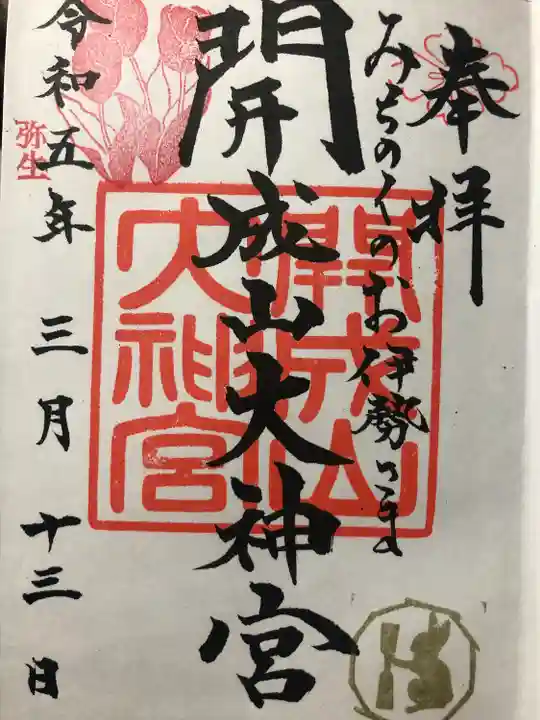 奉拝
みちのくのお伊勢さま
開成山大神宮
開成山
大神宮
令和五年 三月 十三日
弥生